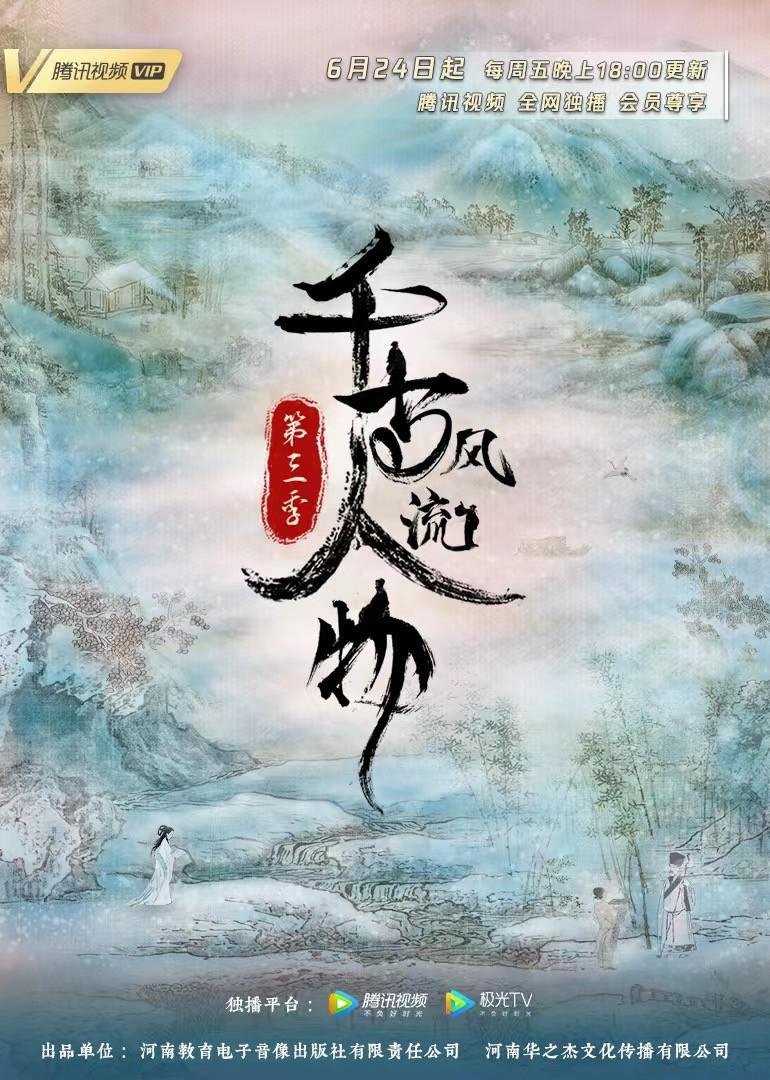 腾讯视频 VIP
6月24日起 每周五晚上18:00更新
腾讯视频 全网独播 会员尊享
千古风流人物
第三季
独播平台： 腾讯视频 不负好时光 极光TV 不负好时光
出品单位：河南教育电子音像出版社有限责任公司 河南华之杰文化传播有限公司